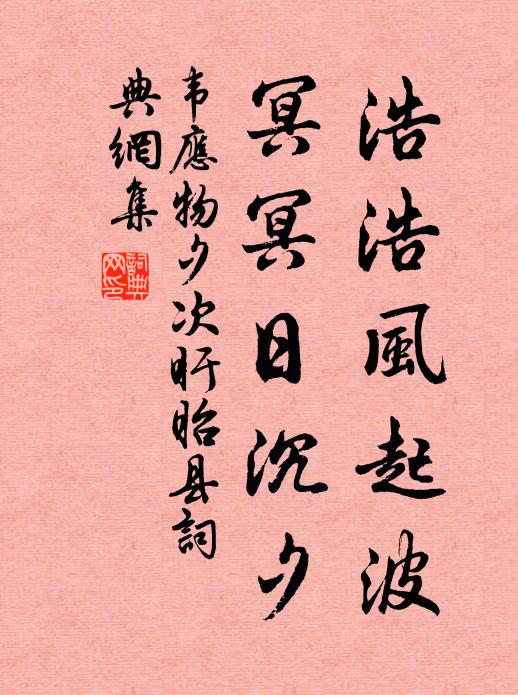 浩浩風起波
冥冥日沉夕
韦應物夕次盱眙县詞
典網集
詞典網印